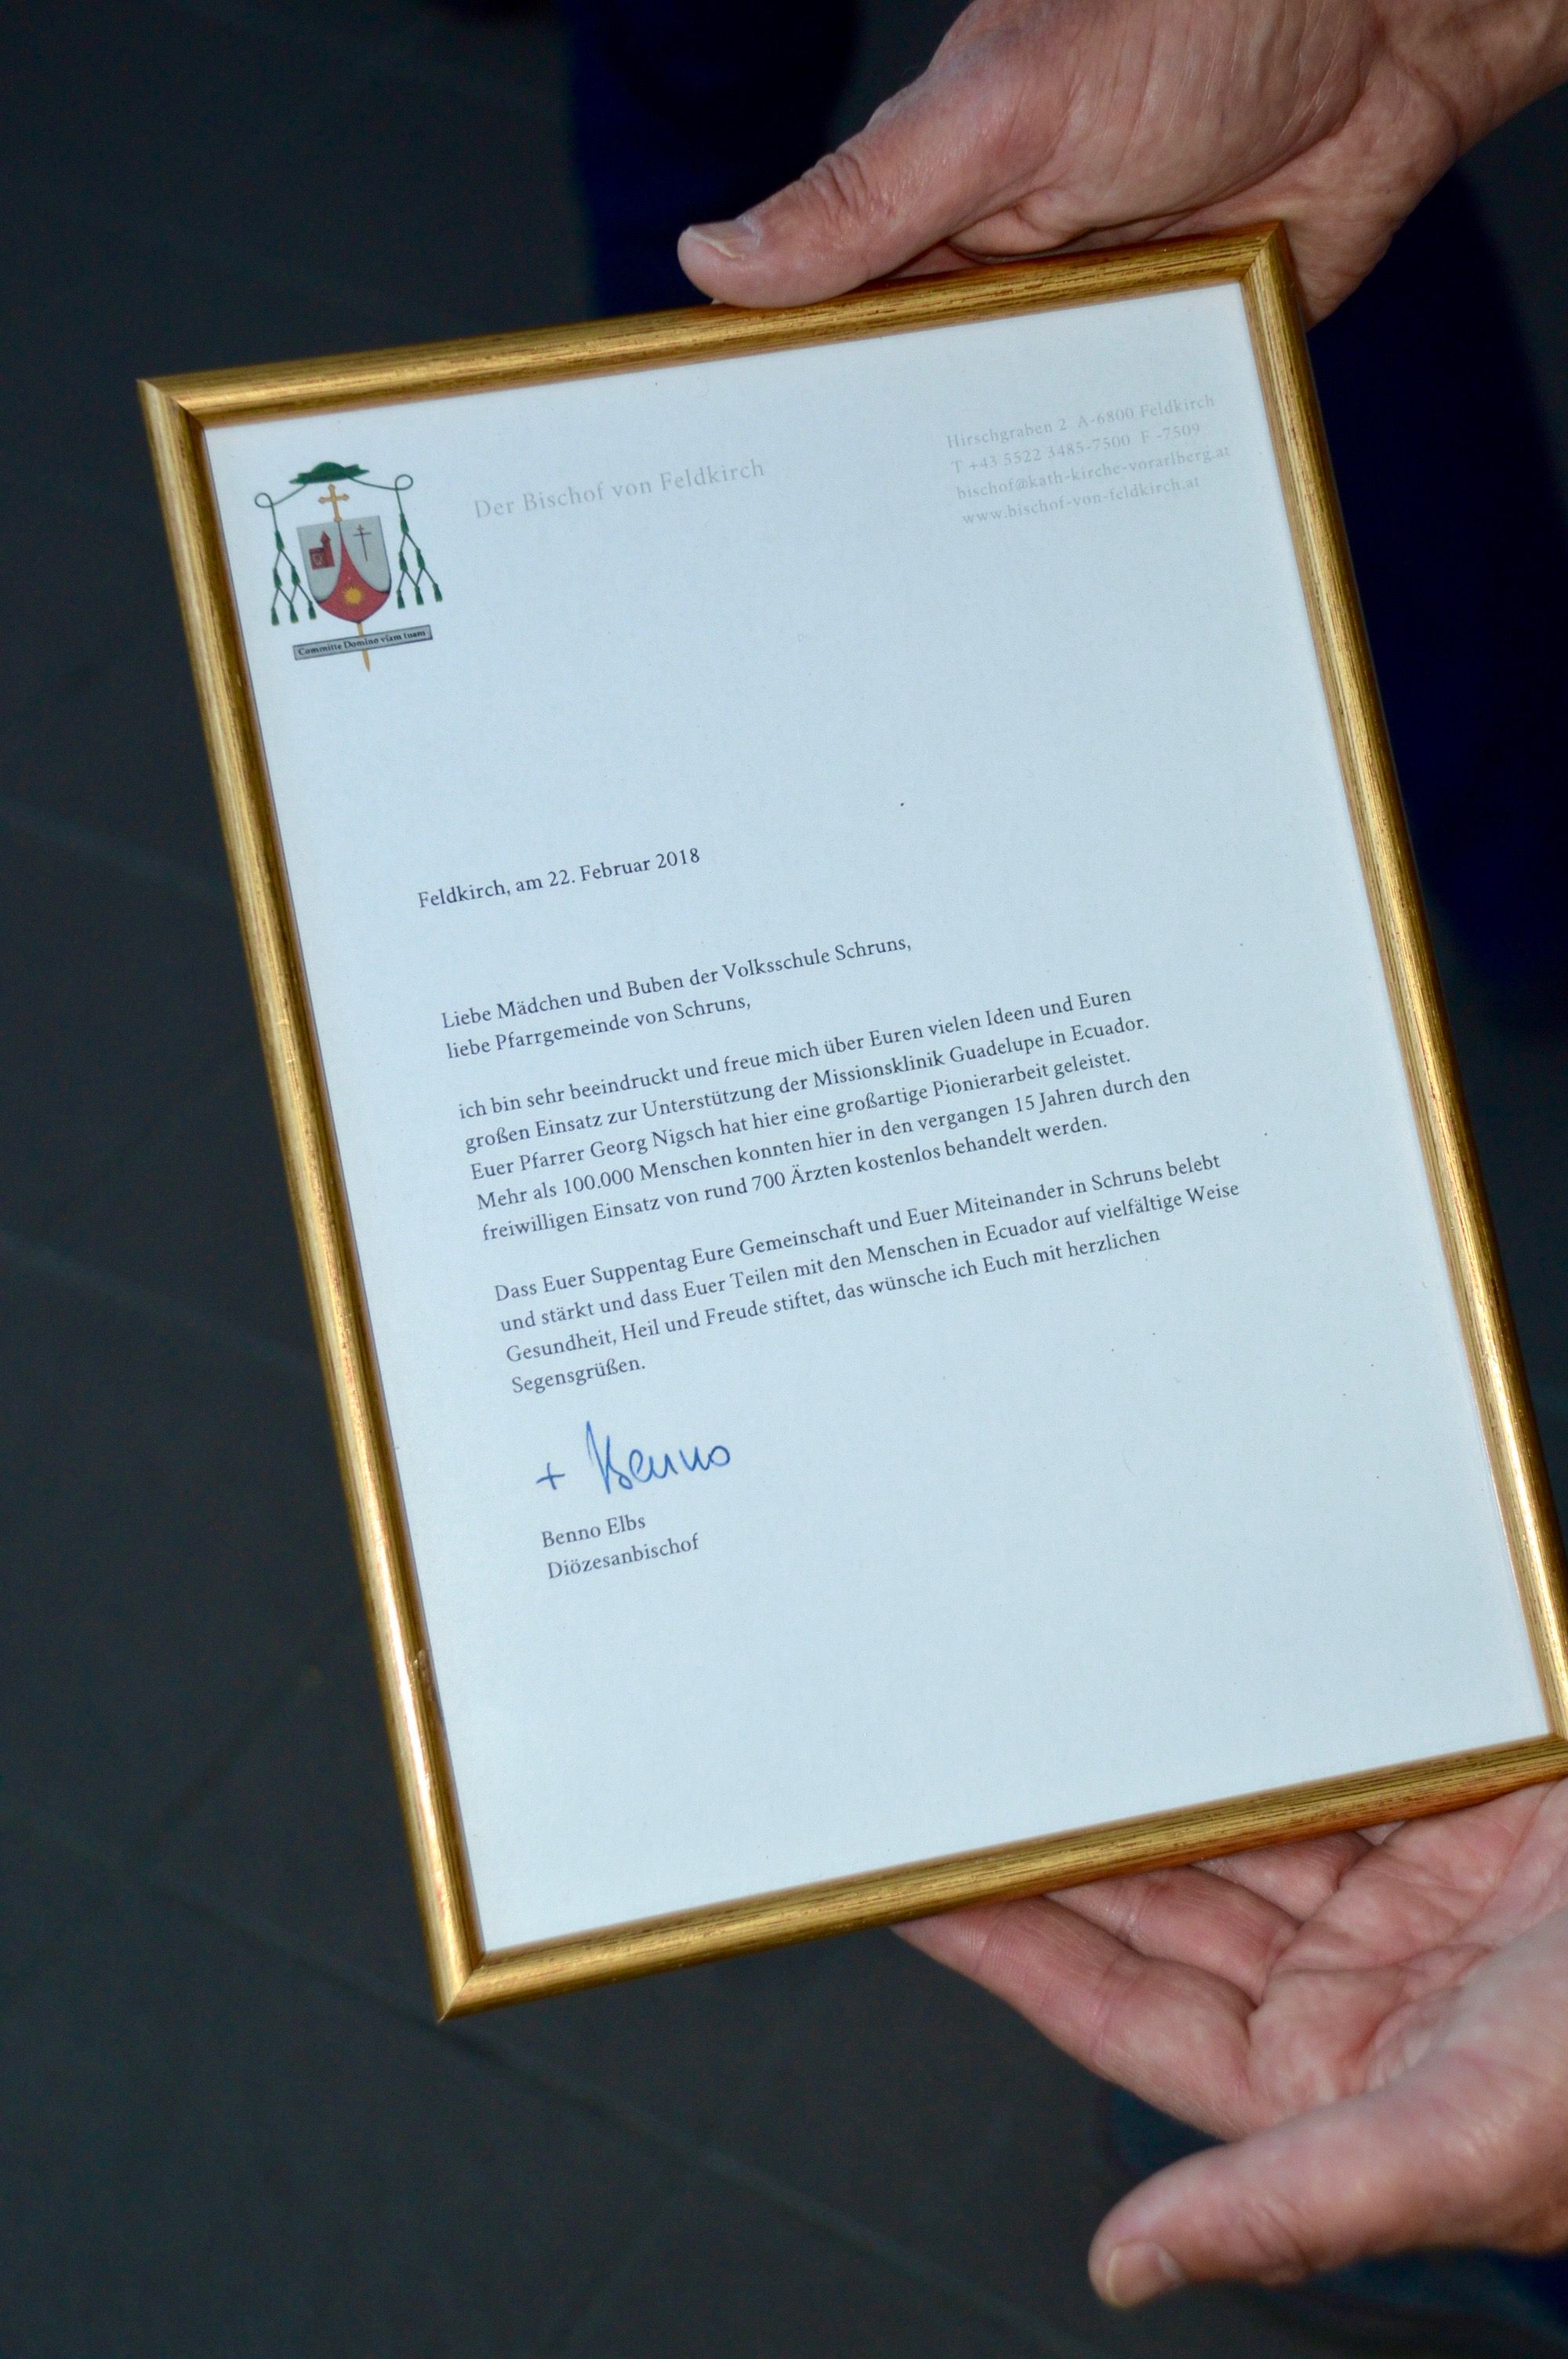 Der Bischof von Feldkirch
Hirschgraben 2 A-6800 Feldkirch
T +43 5522 3485-7500 F -7509
bischof@kath-kirche-vorarlberg.at
www.bischof-von-feldkirch.at
Committe Domino viam tuam
Feldkirch, am 22. Februar 2018
Liebe Mädchen und Buben der Volksschule Schruns,
liebe Pfarrgemeinde von Schruns,
ich bin sehr beeindruckt und freue mich über Euren vielen Ideen und Euren
großen Einsatz zur Unterstützung der Missionsklinik Guadelupe in Ecuador.
Euer Pfarrer Georg Nigsch hat hier eine großartige Pionierarbeit geleistet.
Mehr als 100.000 Menschen konnten hier in den vergangen 15 Jahren durch den
freiwilligen Einsatz von rund 700 Ärzten kostenlos behandelt werden.
Dass Euer Suppentag Eure Gemeinschaft und Euer Miteinander in Schruns belebt
und stärkt und dass Euer Teilen mit den Menschen in Ecuador auf vielfältige Weise
Gesundheit, Heil und Freude stiftet, das wünsche ich Euch mit herzlichen
Segensgrüßen.
+ Benno
Benno Elbs
Diözesanbischof